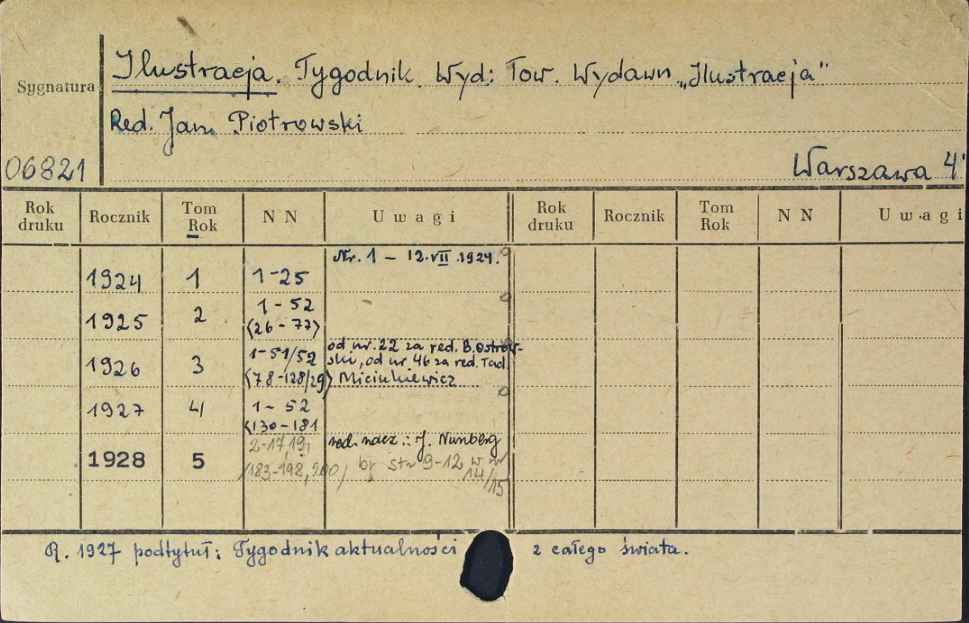 Ilustracja. Tygodnik. Wyd: Tow. Wydawn „Ilustracja"
Sygnatura
Red. Jan Piotrowski
06821
Warszawa 4°
Rok druku Rocznik Tom Rok N N Uwagi Rok druku Rocznik Tom Rok N N Uwagi
Nr. 1 – 12.VII.1924.
1924 1 1-25
1925 2 1-52
(26-77)
1926 3 1-51/52 od nr. 22 za red. B. Ostrow-
ski, od nr. 46 za red. Tad.
(78-128/29)
1927 4 1-52
(130-181
1928 5 2-17, 19, red. nacz.: J. Nunberg
(183-198, 200) br str 9-12 w nr
14/15
R. 1927 podtytuł: Tygodnik aktualności z całego świata.